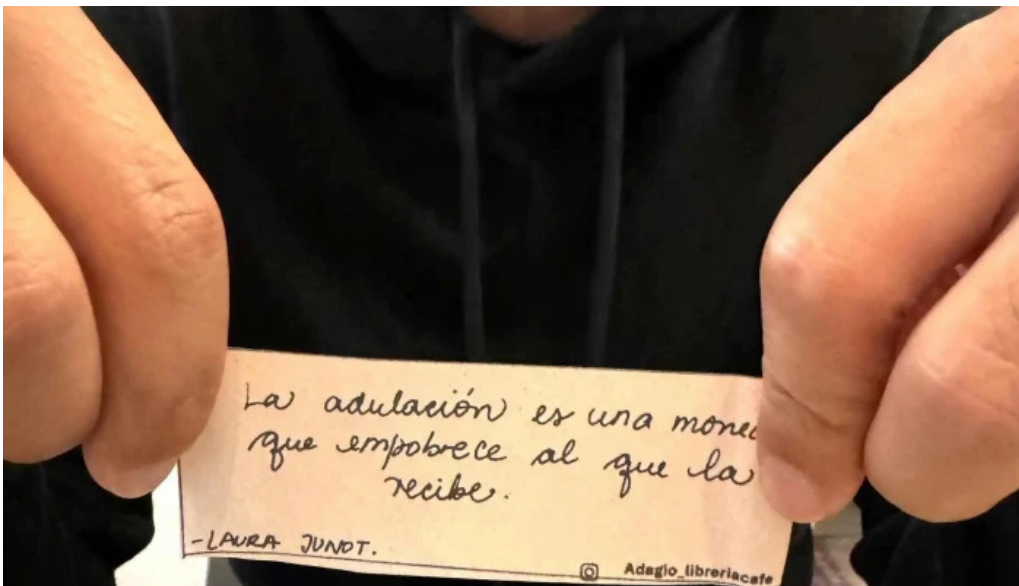 La adulación es una mone
que empobrece al que la
recibe.
-LAURA JUNOT.
Adagio_libreriacafe